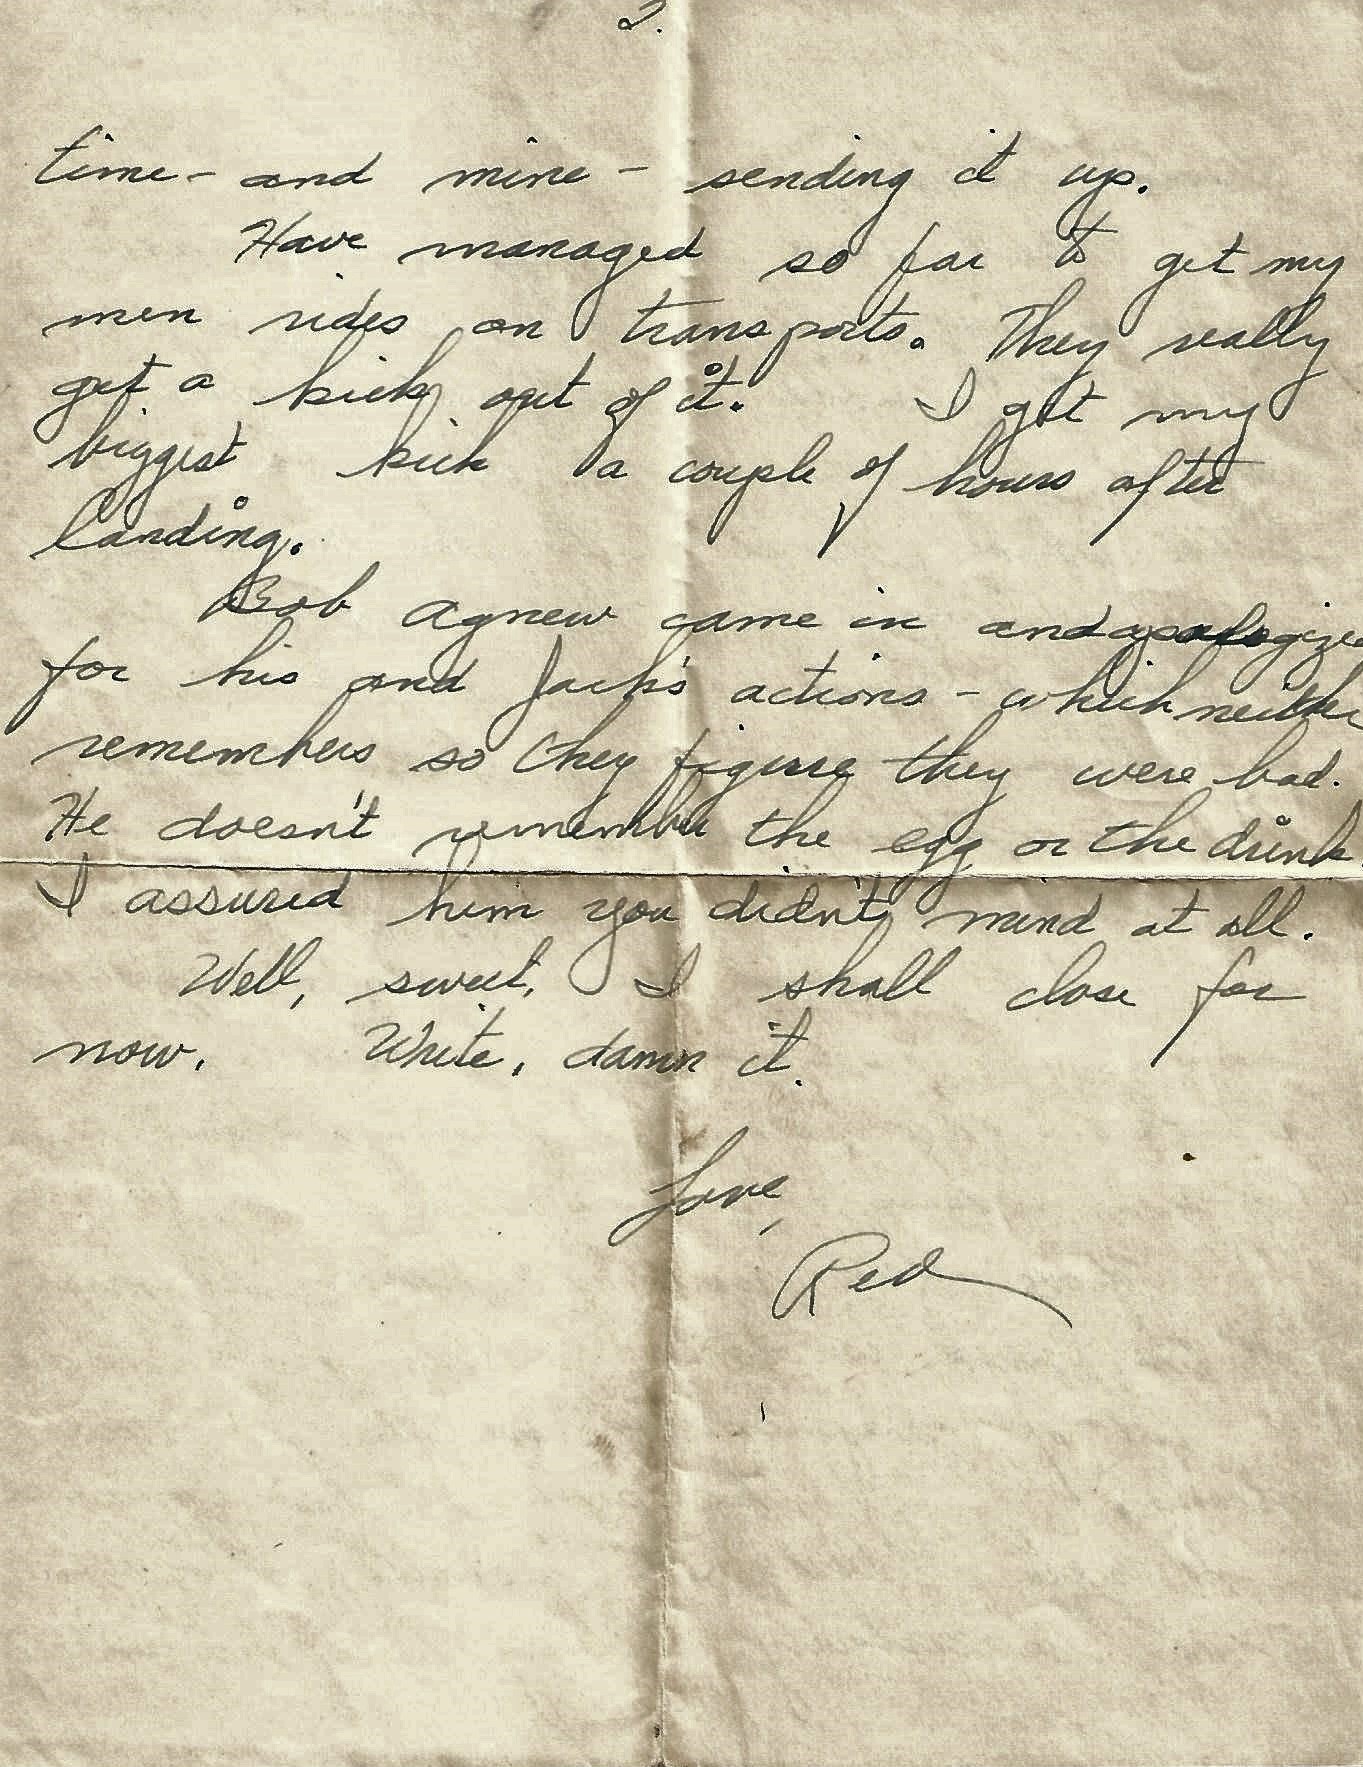 2.
time - and mine - sending it up.
Have managed so far to get my
men rides on transports. They really
get a kick out of it. I get my
biggest kick a couple of hours after
landing.
Bob Agnew came in and apologized
for his and Jack's actions - which neither
remembers so they figure they were bad.
He doesn't remember the egg or the drink.
I assured him you didn't mind at all.
Well, sweet, I shall close for
now. Write, damn it.
Love,
Red